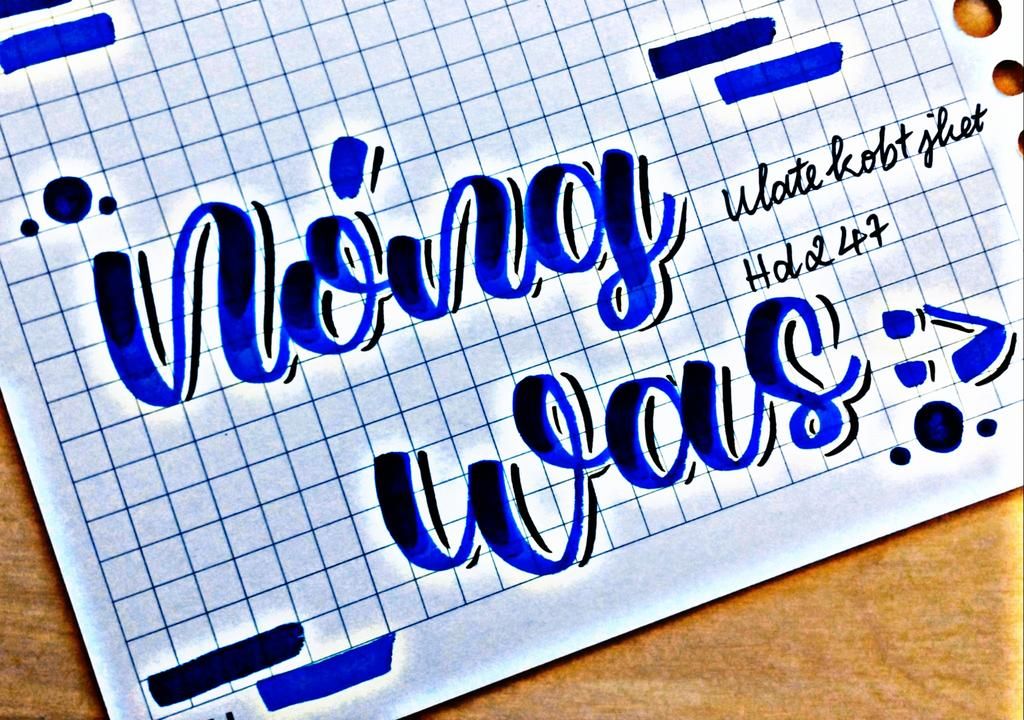 Nóng
was
Ulate kobt jhet
Hd247